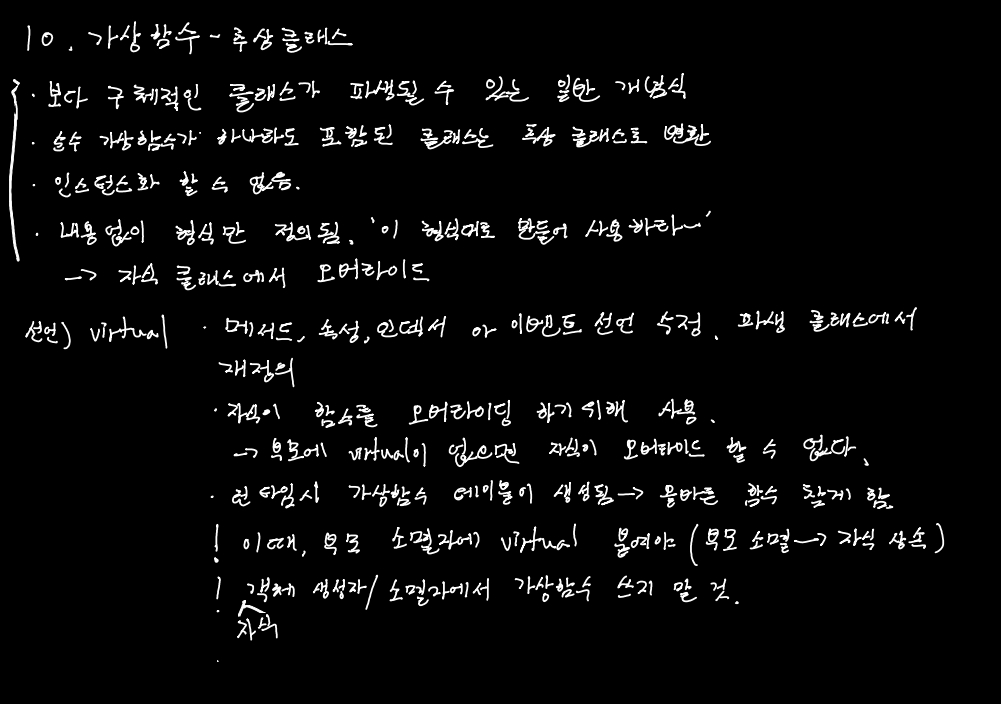 10. 가상함수 - 추상클래스
· 보다 구체적인 클래스가 파생될 수 있는 일반 개념식
· 순수 가상함수가 하나라도 포함된 클래스는 추상 클래스로 변환
· 인스턴스화 할 수 없음.
· 내용없이 형식만 정의됨. '이 형식대로 만들어 사용하라~'
→ 자식 클래스에서 오버라이드
선언) virtual · 메서드, 속성, 인덱서 or 이벤트 선언 수정. 파생 클래스에서
재정의
· 자식이 함수를 오버라이딩 하기 위해 사용.
→ 부모에 virtual이 없으면 자식이 오버라이드 할 수 없다.
· 런타임시 가상함수 테이블이 생성됨 → 올바른 함수 찾게 함
! 이때, 부모 소멸자에 virtual 붙여야 (부모 소멸 → 자식 상속)
! 객체 생성자/소멸자에서 가상함수 쓰지 말 것.
자식